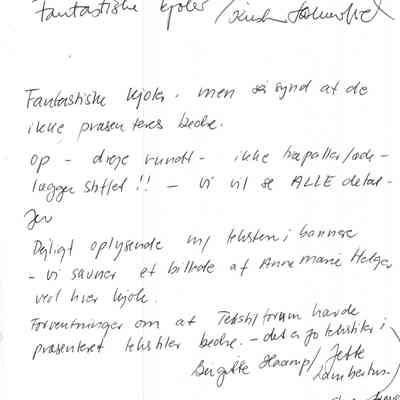 Fantastiske kjoler /
Fantastiske kjoler. men så synd at de
ikke præsenteres bedre.
op - dreje rundt - ikke
lægger stoffet !! - vi vil se ALLE detal-
jer
Dejligt oplysende m/ teksten i bannere
- vi savner et billede af Anne Marie Helger
ved hver kjole.
Forventninger om at Textilforum havde
præsenteret tekstiler bedre. - det er jo tekstiler i
Birgitte Haarup / Jette
Lambertus